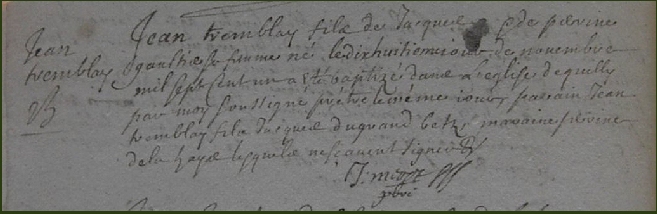 Jean
tremblay
Jean tremblay fils de Jacques et de perinne
gaultier sa femme né le dixhuitiemejour de novembre
mil sept cent un a ete baptizé dans l'eglise de quilly
par moy soussigné prêtre le même jour parain Jean
tremblay fils Jacques du grand betz maraine perinne
de la haye lesquels ne scavent signer
J: prbre